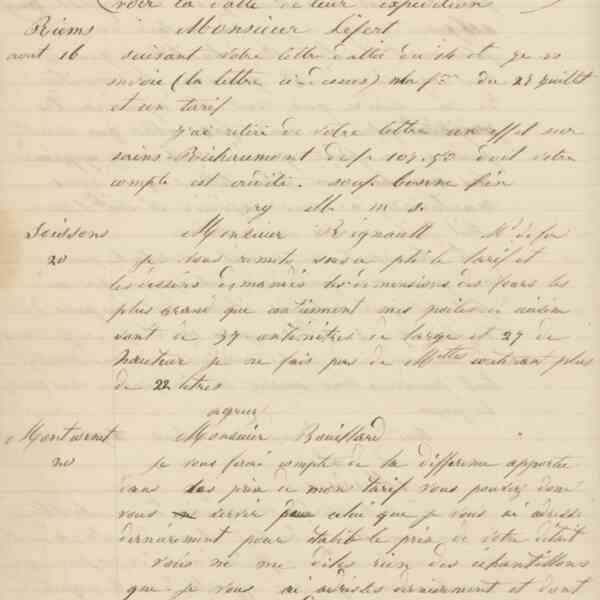 (voir la date de leur expédition
Reims Monsieur Lefert
aout 16 suivant votre lettre datée du 14 et je vs
envoie (la lettre ci dessus) ma fre du 25 juillet
et un tarif
j'ai retiré de votre lettre un effet sur
sains-Richaumont de fr 107.50 dont votre
compte est crédité. sauf bonne fin
Soissons Monsieur Rignault
20 je vous remets sous ce pli le tarif et
les dessins demandés les dimensions des fours les
plus grand que contiennent mes poêles de cuisine
sont de 37 centimètres de large et 27 de
hauteur je ne fais pas de Mittes contenant plus
de 22 litres
agréez
Montcornet Monsieur Bouillard
20 je vous ferai compte de la différence apportée
dans les prix de mon tarif vous pouvez donc
vous servir celui que je vous ai adressé
dernièrement pour établir le prix de votre détail
vous ne me dites rien des échantillons
que je vous ai adressés dernièrement et dont